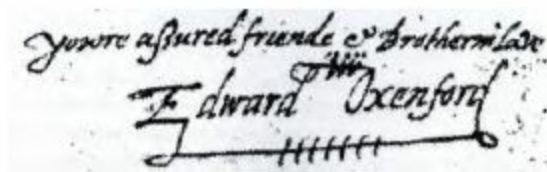 yowre assured friende & Brotherinlawe
Edward Oxenford